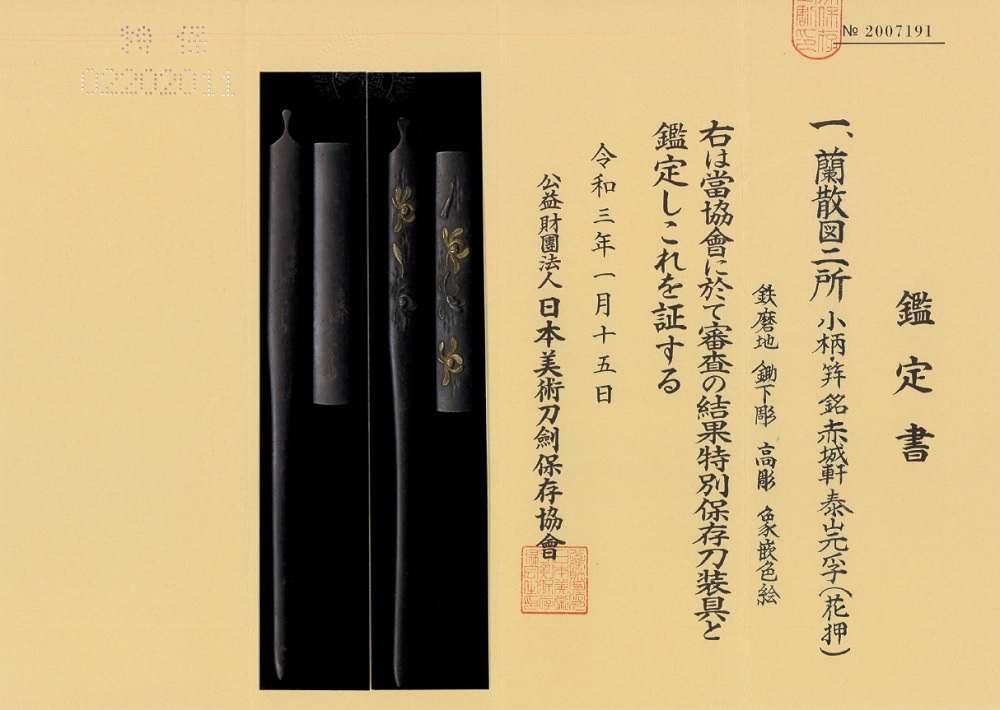 № 2007191
鑑定書
一、蘭散図二所 小柄・笄 銘 赤城軒泰山元孚(花押)
鉄磨地 鋤下彫 高彫 象嵌色絵
右は當協會に於て審査の結果特別保存刀装具と
鑑定しこれを証する
令和三年一月十五日
公益財團法人 日本美術刀劍保存協會
02202011